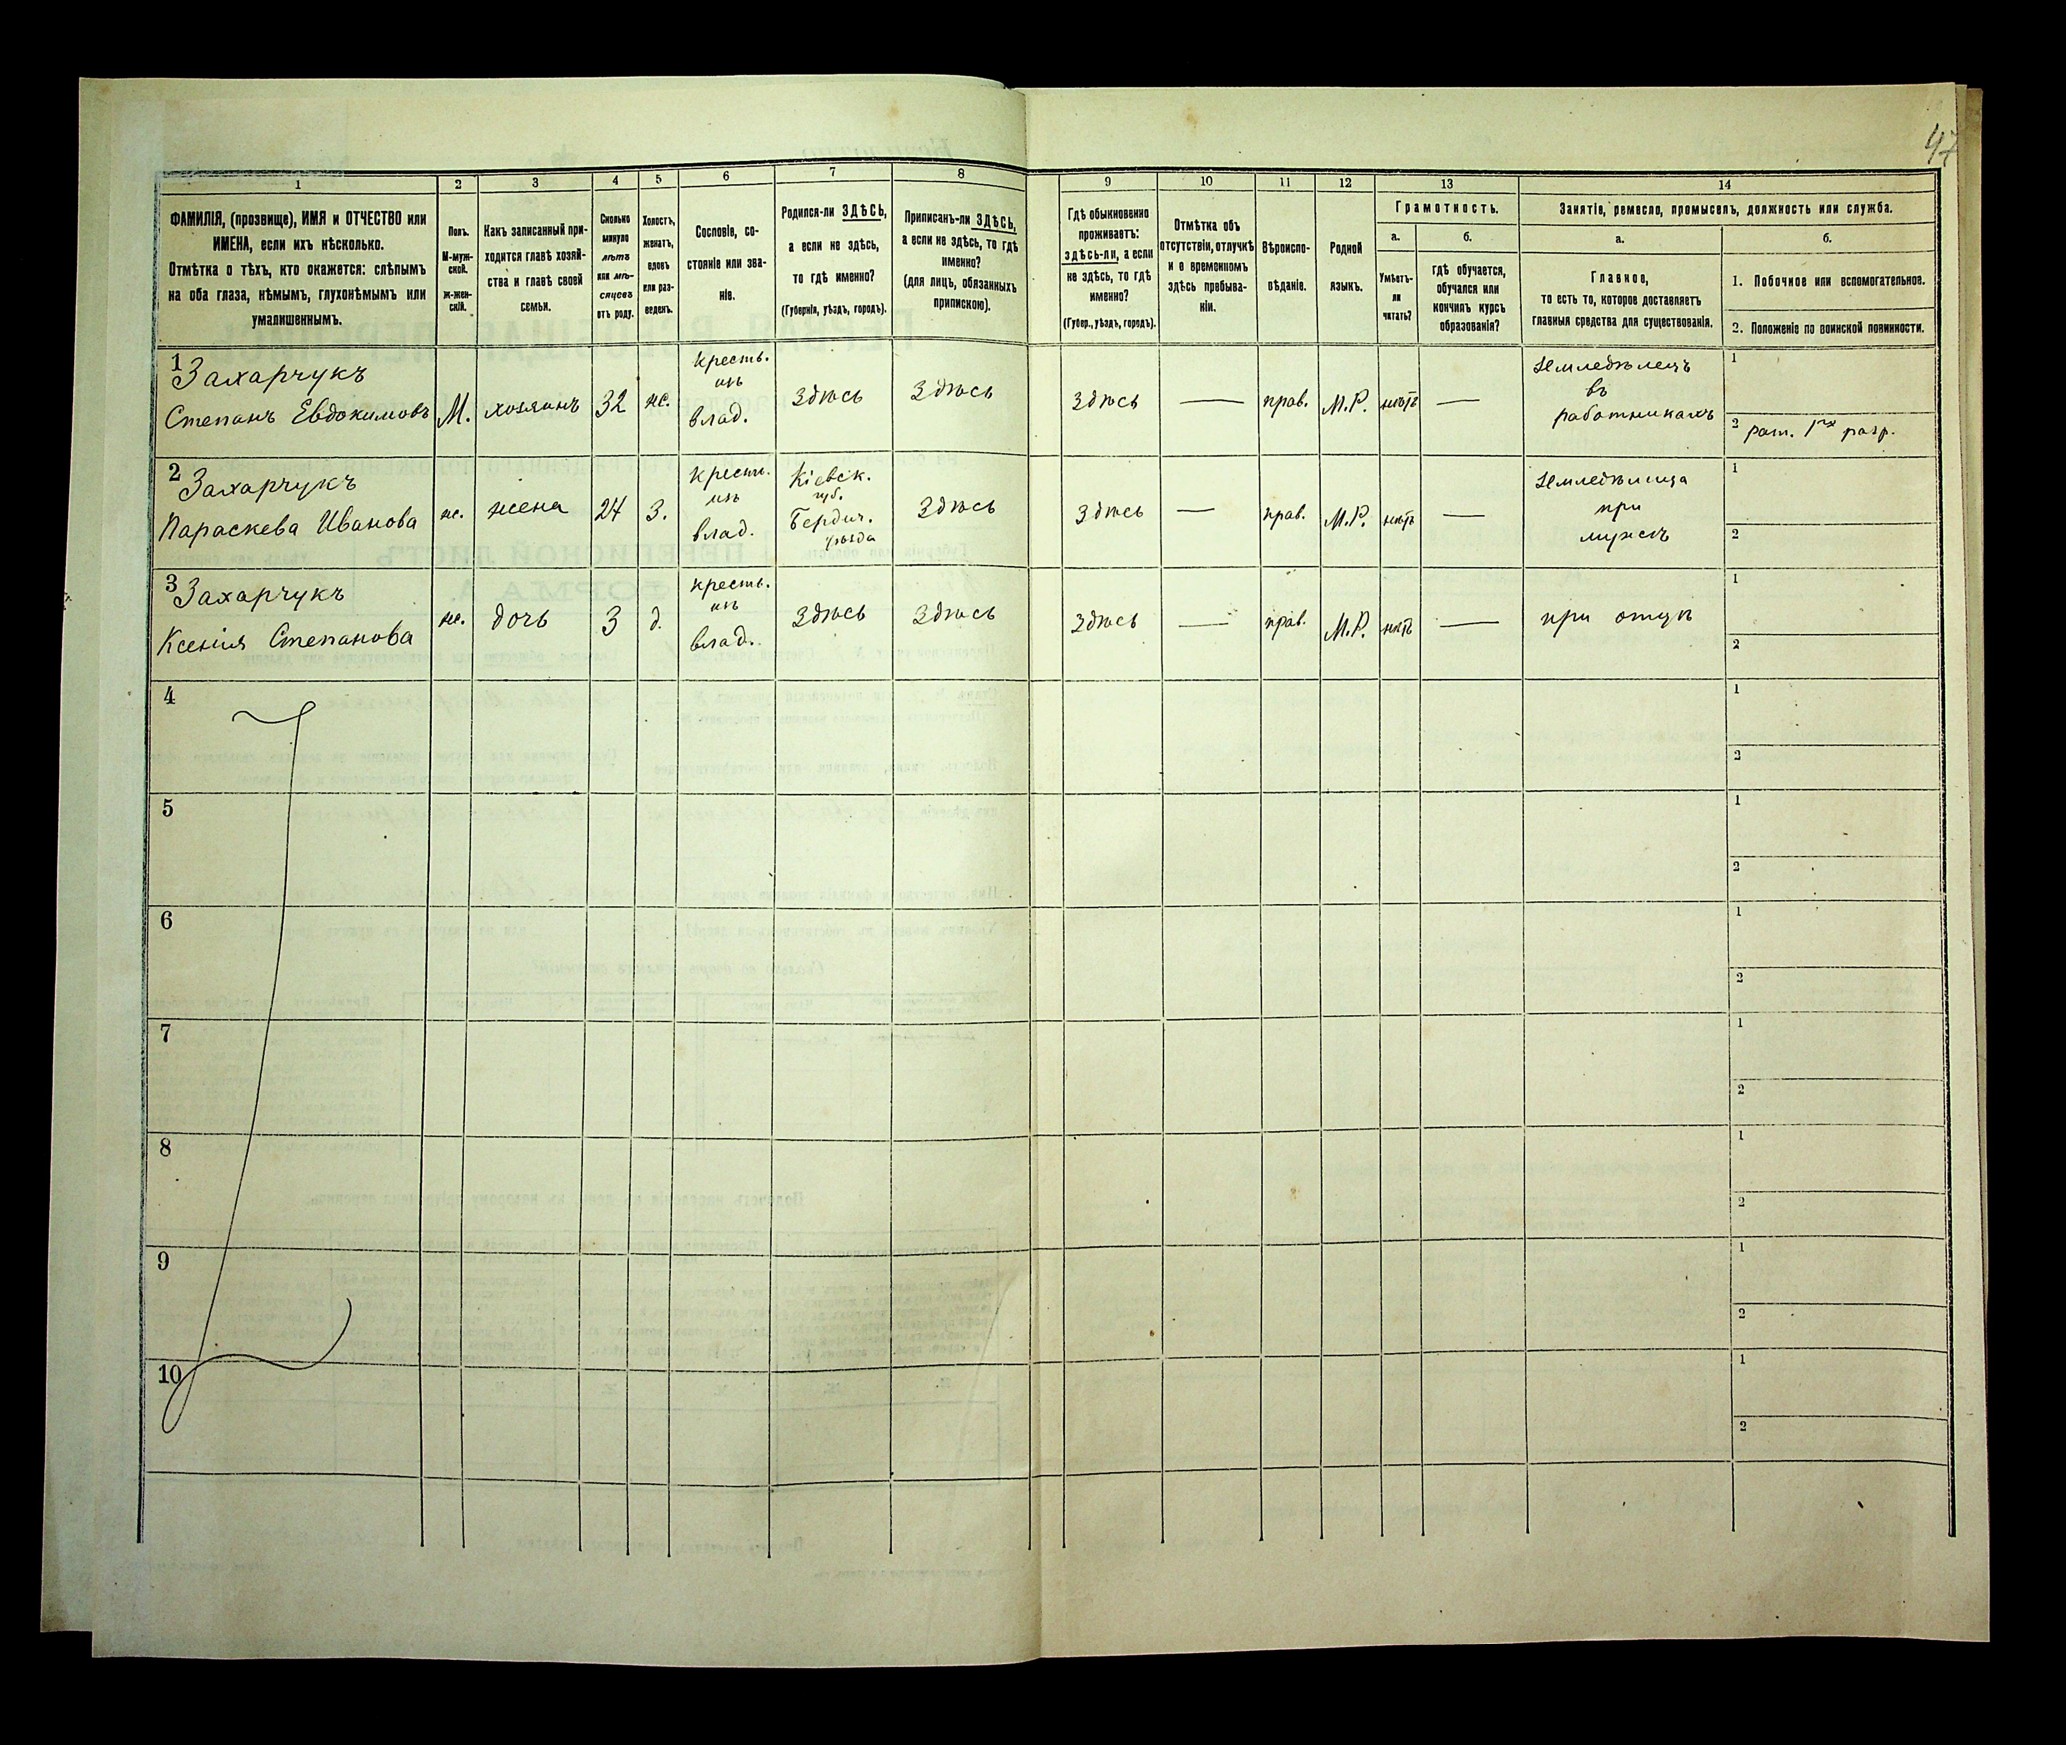 47
1
2
3
4
5
6
7
8
9
10
11
12
13
14
ФАМИЛІЯ, (прозвище), ИМЯ и ОТЧЕСТВО или
ИМЕНА, если ихъ нѣсколько.
Отмѣтка о тѣхъ, кто окажется: слѣпымъ
на оба глаза, нѣмымъ, глухонѣмымъ или
умалишеннымъ.
Полъ.
М-муж-
ской.
ж-жен-
скій.
Какъ записанный при-
ходится главѣ хозяй-
ства и главѣ своей
семьи.
Сколько
минуло
лѣтъ
или мѣ-
сяцевъ
отъ роду.
Холостъ,
женатъ,
вдовъ
или раз-
веденъ.
Сословіе, со-
стояніе или зва-
ніе.
Родился-ли ЗДѢСЬ,
а если не здѣсь,
то гдѣ именно?
(Губернія, уѣздъ, городъ).
Приписанъ-ли ЗДѢСЬ,
а если не здѣсь, то гдѣ
именно?
(для лицъ, обязанныхъ
припискою).
Гдѣ обыкновенно
проживаетъ:
здѣсь-ли, а если
не здѣсь, то гдѣ
именно?
(Губер., уѣздъ, городъ).
Отмѣтка объ
отсутствіи, отлучкѣ
и о временномъ
здѣсь пребыва-
ніи.
Вѣроиспо-
вѣданіе.
Родной
языкъ.
Грамотность.
а.
Умѣетъ-
ли
читать?
б.
гдѣ обучается,
обучался или
кончилъ курсъ
образованія?
Занятіе, ремесло, промыселъ, должность или служба.
а.
Главное,
то есть то, которое доставляетъ
главныя средства для существованія.
б.
1. Побочное или вспомогательное.
2. Положеніе по воинской повинности.
1
Захарчукъ
Степанъ Евдокимовъ
М.
хозяинъ
32
ж.
кресть.
изъ
влад.
Здѣсь
Здѣсь
Здѣсь
—
прав.
М.Р.
нѣтъ
—
Земледѣлецъ
въ
работникахъ
1
2 рат. 1го разр.
2
Захарчукъ
Параскева Иванова
ж.
жена
24
з.
кресть.
изъ
влад.
Кіевск.
губ.
Бердич.
уѣзда
Здѣсь
Здѣсь
—
прав.
М.Р.
нѣтъ
—
Земледѣлица
при
мужѣ
1
2
3
Захарчукъ
Ксенія Степанова
ж.
дочь
3
д.
кресть.
изъ
влад.
Здѣсь
Здѣсь
Здѣсь
—
прав.
М.Р.
нѣтъ
—
при отцѣ
1
2
4
1
2
5
1
2
6
1
2
7
1
2
8
1
2
9
1
2
10
1
2